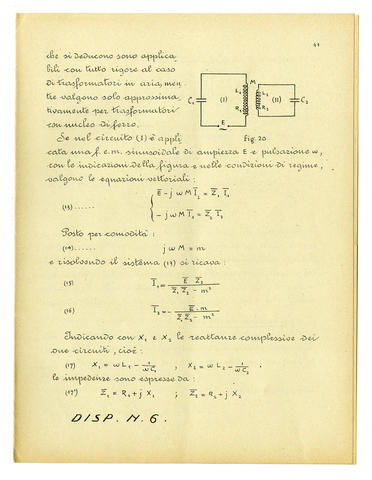 41
che si deducono sono applica
bili con tutto rigore al caso
di trasformatori in aria, men
tre valgono solo approssima
tivamente per trasformatori
con nucleo di ferro.
C₁ (I) L₁ R₁ M L₂ R₂ (II) C₂
E
Fig. 20
Se nel circuito (I) è appli
cata una f.e.m. sinusoidale di ampiezza E e pulsazione ω,
con le indicazioni della figura e nelle condizioni di regime,
valgono le equazioni vettoriali:
E̅ - j ω M I̅₂ = Z̅₁ I̅₁
(13)......
- j ω M I̅₁ = Z̅₂ I̅₂
Posto per comodità:
(14)...... j ω M = m
e risolvendo il sistema (13) si ricava:
(15) I̅₁ = E̅ Z̅₂ / Z̅₁ Z̅₂ - m²
(16) I̅₂ = - E̅ · m / Z̅₁ Z̅₂ - m²
Indicando con X₁ e X₂ le reattanze complessive dei
due circuiti, cioè:
(17) X₁ = ω L₁ - 1/ωC₁ , X₂ = ω L₂ - 1/ωC₂
le impedenze sono espresse da:
(17') Z̅₁ = R₁ + j X₁ ; Z̅₂ = R₂ + j X₂
DISP. N. 6.